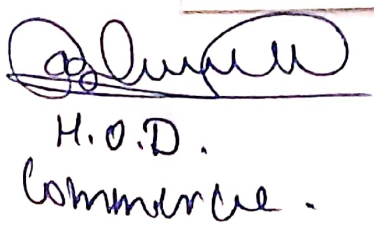 H.O.D.
Commerce.